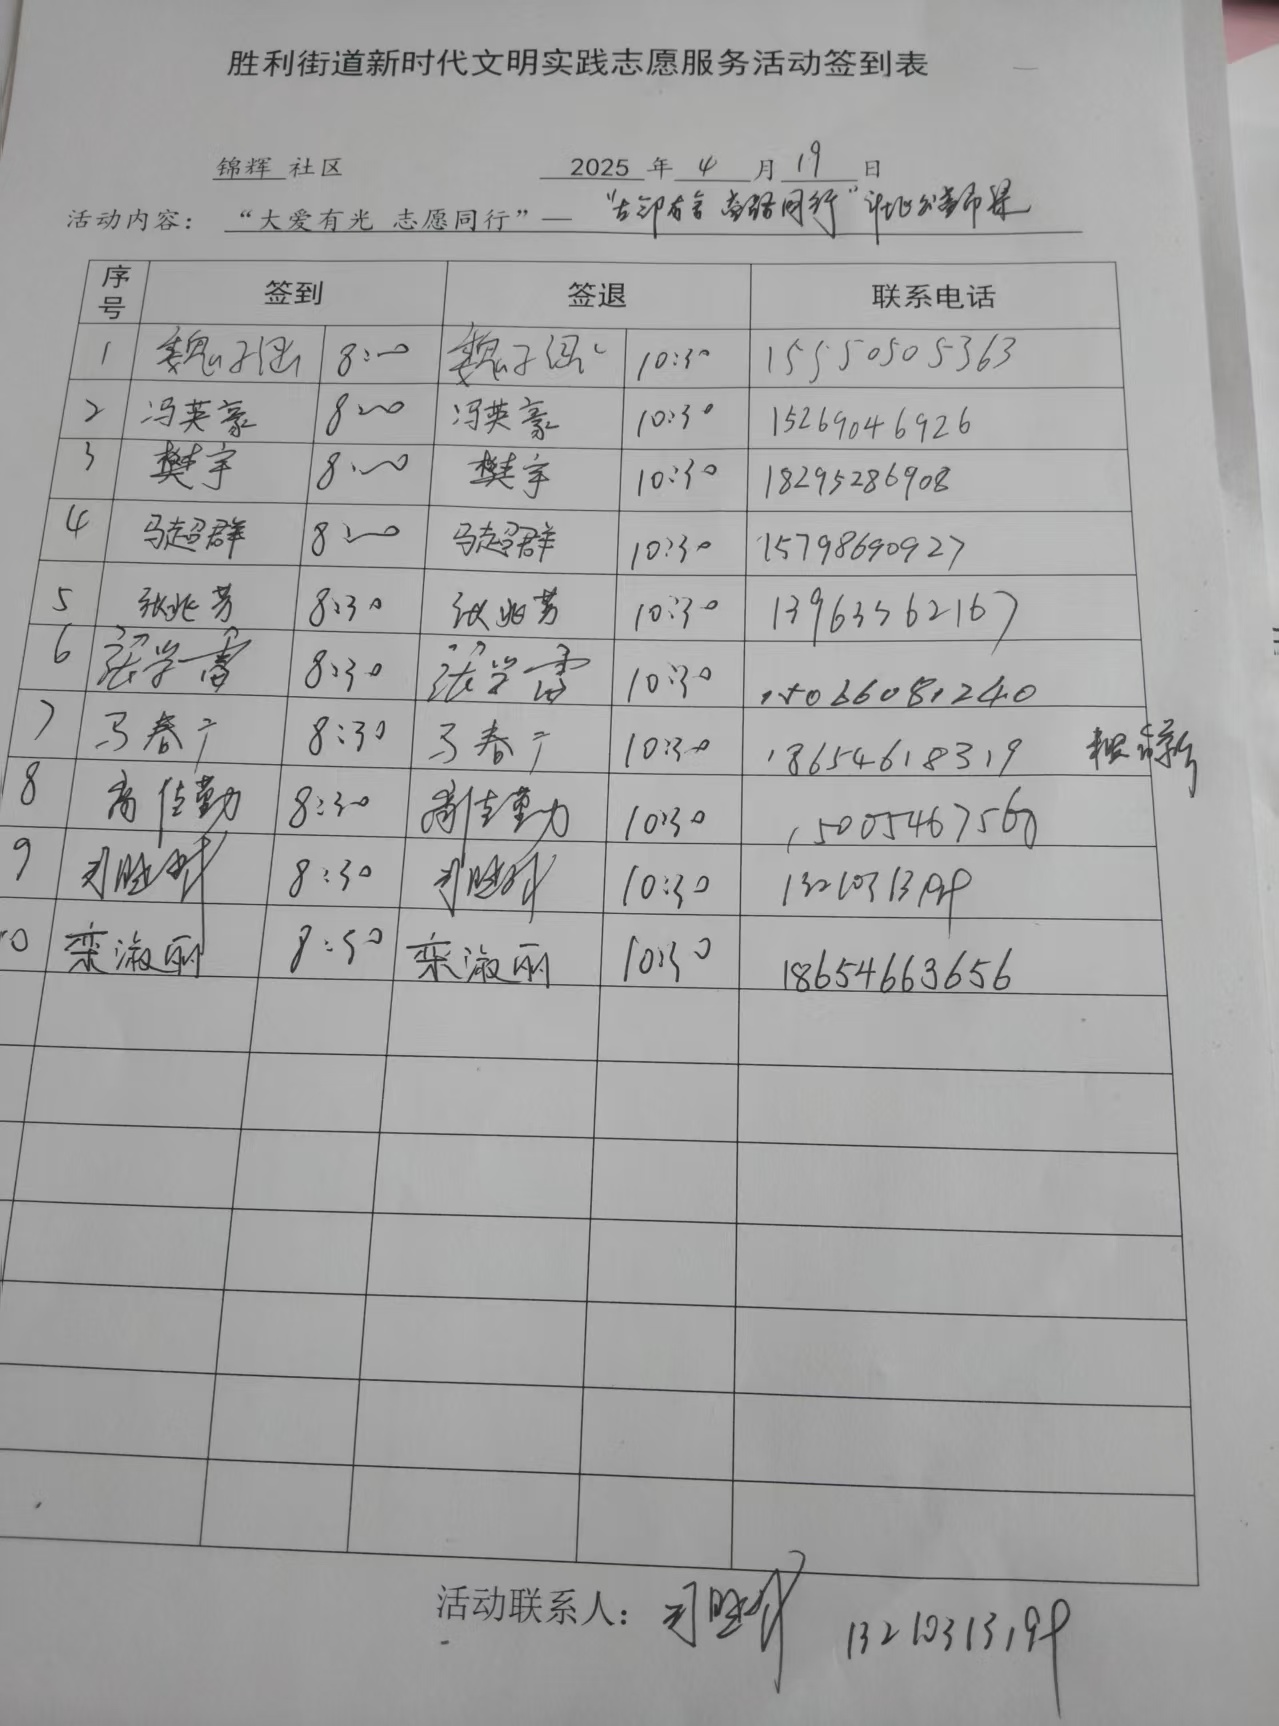 胜利街道新时代文明实践志愿服务活动签到表
锦辉 社区 2025 年 4 月 19 日
活动内容： “大爱有光 志愿同行”—
序号 签到 签退 联系电话
1 魏子涵 8:00 魏子涵 10:30 15550505363
2 冯英豪 8:00 冯英豪 10:30 15269046926
3 樊宇 8:00 樊宇 10:30 18295286908
4 马超群 8:00 马超群 10:30 15798690927
5 张兆芳 8:30 张兆芳 10:30 13963562167
6 张学雷 8:30 张学雷 10:30 15066081240
7 马春广 8:30 马春广 10:30 18654618319
8 高佳勤 8:30 高佳勤 10:30 15005467560
9 8:30 10:30 13210313199
10 栾淑丽 8:50 栾淑丽 10:30 18654663656
活动联系人： 13210313199